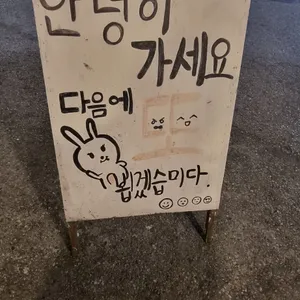 안녕히
가세요
다음에 또
뵙겠습니다.